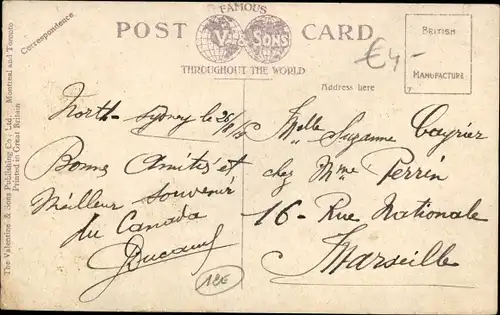 FAMOUS
POST CARD
V & SONS
THROUGHOUT THE WORLD
Correspondence
Address here
BRITISH
MANUFACTURE
7
€4-
The Valentine & Sons Publishing Co., Ltd., Montreal and Toronto
Printed in Great Britain
North-Sydney le 26/8/
Bonnes Amitiés et
Meilleur souvenir
du Canada
Melle Suzanne
chez Mme Perrin
16- Rue Nationale
Marseille
12€